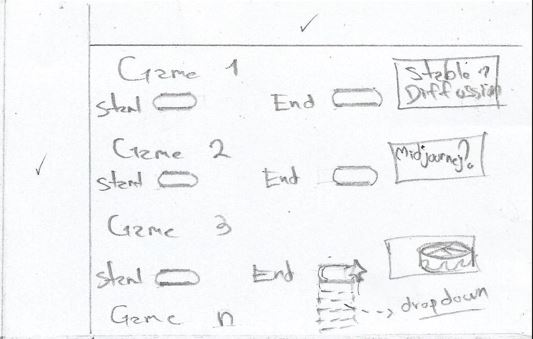 Game 1
Start End
Stable ?
Diffussion
Game 2
Start End
Midjourney?
Game 3
Start End
dropdown
Game n